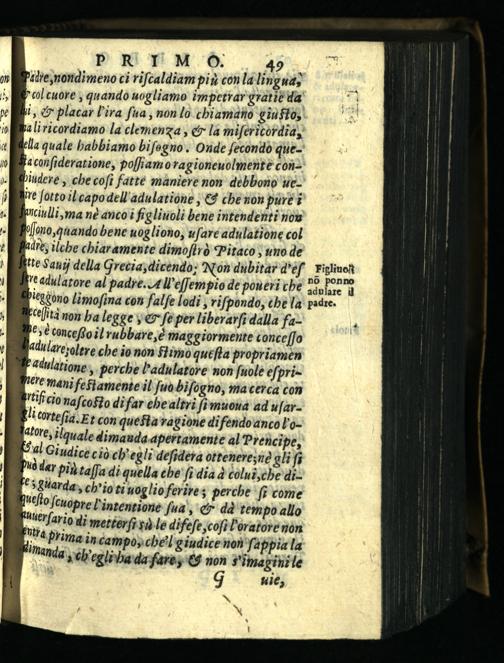 PRIMO. 49
Padre, nondimeno ci riscaldiam più con la lingua,
& col cuore, quando uogliamo impetrar gratie da
lui, & placar l'ira sua, non lo chiamano giusto,
ma li ricordiamo la clemenza, & la misericordia,
della quale habbiamo bisogno. Onde secondo que-
sta consideratione, possiamo ragioneuolmente con-
chiudere, che cosi fatte maniere non debbono ue-
nire sotto il capo dell'adulatione, & che non pure i
fanciulli, ma nè anco i figliuoli bene intendenti non
possono, quando bene uogliono, usare adulatione col
padre, ilche chiaramente dimostrò Pitaco, uno de
sette Sauij della Grecia, dicendo; Non dubitar d'es
sere adulatore al padre. All'essempio de poueri che
chieggono limosina con false lodi, rispondo, che la
necessità non ha legge, & se per liberarsi dalla fa-
me, è concesso il rubbare, è maggiormente concesso
l'adulare; oltre che io non stimo questa propriamen
te adulatione, perche l'adulatore non suole espri-
mere manifestamente il suo bisogno, ma cerca con
artificio nascosto di far che altri si muoua ad usar-
gli cortesia. Et con questa ragione difendo anco l'o-
ratore, ilquale dimanda apertamente al Prencipe,
& al Giudice ciò ch'egli desidera ottenere; nè gli si
può dar più tassa di quella che si dia à colui, che di-
ce; guarda, ch'io ti uoglio ferire; perche si come
questo scuopre l'intentione sua, & dà tempo allo
auuersario di mettersi sù le difese, cosi l'oratore non
entra prima in campo, che'l giudice non sappia la
dimanda, ch'egli ha da fare, & non s'imagini le
G uie,
Figliuoli
nō ponno
adulare il
padre.